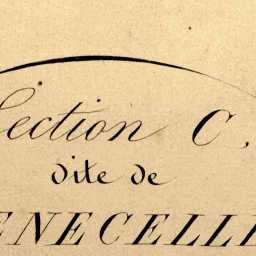 Section C.
dite de
ENECELLE